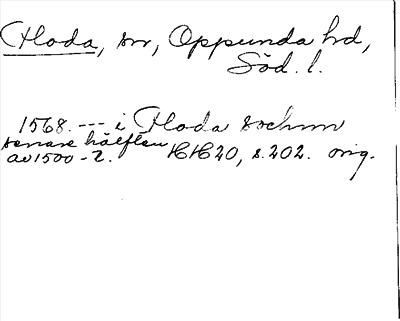 Floda, sn, Oppunda hd,
Söd. l.
1568. --- i Floda sochnn
senare hälften
av 1500-t. HH20, s. 202. orig.